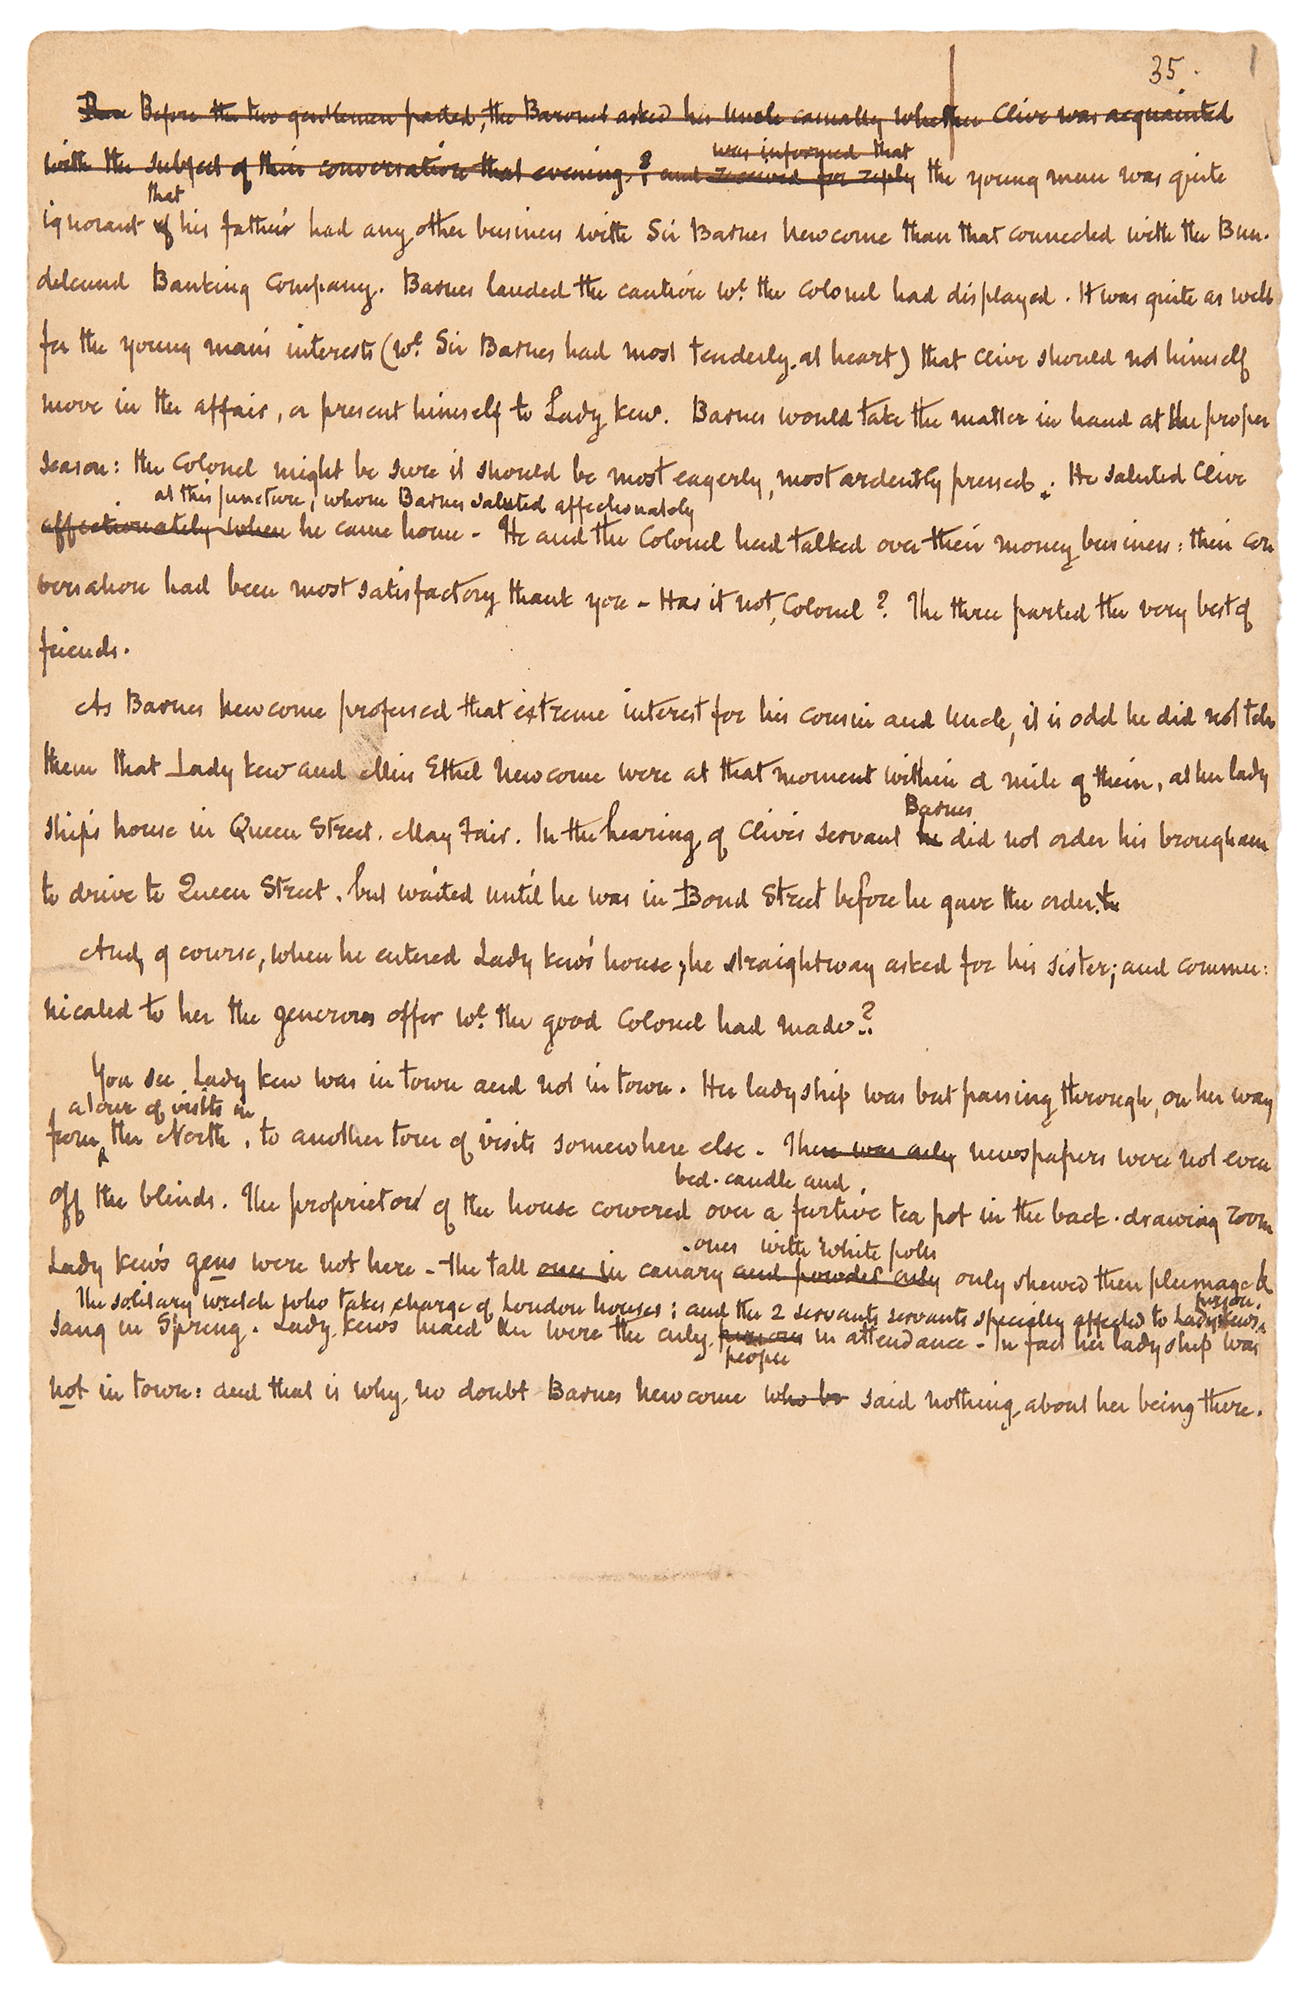 35.
Before the two gentlemen parted, the Baronet asked his Uncle casually whether Clive was acquainted
was informed that
with the subject of their conversation that evening, & and received for reply the young man was quite
that
ignorant of his father had any other business with Sir Barnes Newcome than that connected with the Bun-
delcund Banking Company. Barnes lauded the caution wh. the Colonel had displayed. It was quite as well
for the young man's interests (wh. Sir Barnes had most tenderly at heart) that Clive should not himself
move in the affair, or present himself to Lady Kew. Barnes would take the matter in hand at the proper
season: the Colonel might be sure it should be most eagerly, most ardently pressed. He saluted Clive
at this juncture, whom Barnes saluted affectionately
affectionately when he came home - He and the Colonel had talked over their money business: their con
versation had been most satisfactory thank you - Has it not, Colonel? The three parted the very best of
friends.
As Barnes Newcome professed that extreme interest for his cousin and Uncle, it is odd he did not tell
them that Lady Kew and Miss Ethel Newcome were at that moment within a mile of them, at her lady
Barnes
ship's house in Queen Street. May Fair. In the hearing of Clive's servant he did not order his brougham
to drive to Queen Street, but waited until he was in Bond Street before he gave the order. to
And, of course, when he entered Lady Kew's house, he straightway asked for his sister; and commu:
nicated to her the generous offer wh. the good Colonel had made?
You see Lady Kew was in town and not in town. Her ladyship was but passing through, on her way
a tour of visits in
from the North, to another tour of visits somewhere else. There was only newspapers were not even
bed-candle and
off the blinds. The proprietor of the house cowered over a furtive tea pot in the back-drawing room
ones with white polls
Lady Kew's gens were not here - the tall ones in canary and powder only only shewed their plumage &
The solitary wretch who takes charge of London houses; and the 2 servants servants specially affected to Lady Kew's person.
sang in Spring. Lady Kew's maid were the only persons in attendance - In fact her ladyship was
people
not in town: and that is why, no doubt Barnes Newcome who be said nothing about her being there.